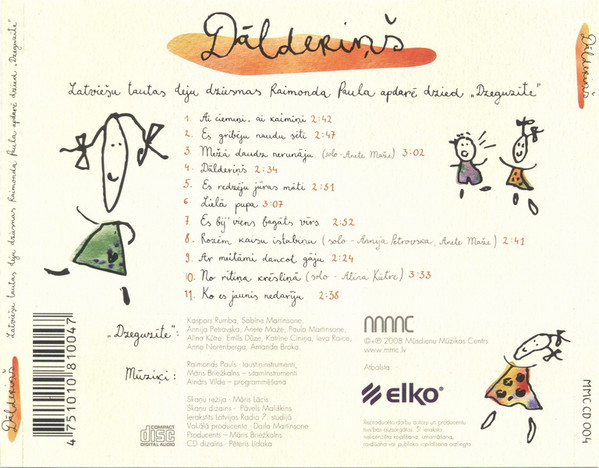 Dālderiņš
Latviešu tautas deju dziesmas Raimonda Paula apdarē dzied "Dzeguzīte"
1. Ai ciemiņi, ai kaimiņi 2:42
2. Es gribēju naudu sēti 2:47
3. Mežā daudz nerunāju (solo - Anete Maže) 3:02
4. Dālderiņš 2:34
5. Es redzēju jūras māti 2:51
6. Lielā pupa 3:07
7. Es bij' viens bagāts vīrs 2:52
8. Rozēm kaisu istabiņu (solo - Annija Petrovska, Anete Maže) 2:41
9. Ar meitāmi dancot gāju 2:24
10. No rītiņa krēsliņā (solo - Alīna Kūtre) 3:33
11. Ko es jaunis nedarīju 2:58
"Dzeguzīte":
Kaspars Rumba, Sabīne Martinsone,
Annija Petrovska, Anete Maže, Paula Martinsone,
Alīna Kūtre, Emīls Dūze, Katrīne Cīrule, Ieva Raice,
Anne Norenberga, Amanda Bīoka.
Mūziķi:
Raimonds Pauls - taustiņinstrumenti,
Māris Briežkalns - sitaminstrumenti
Ainārs Vilde - programmēšana
Skaņu režija - Māris Lācis
Skaņu dizains - Pāvels Mališkins
Ierakstīts Latvijas Radio 7. studijā
Vokālā producente - Daila Martinsone
Producents - Māris Briežkalns
CD dizains - Pēteris Udoka
COMPACT
disc
DIGITAL AUDIO
mmc
©+℗ 2008 Mūsdienu Mūzikas Centrs
www.mmc.lv
Atbalsta:
elko®
Reproducēto darbu autoru un producentu
tiesības aizsargātas. Šī ieraksta
nelicencēta kopēšana, iznomāšana,
raidīšana vai publiska izpildīšana aizliegta.
4 751010 810047
Dālderiņš Latviešu tautas deju dziesmas Raimonda Paula apdarē dzied "Dzeguzīte"
Dālderiņš
MMC CD 004